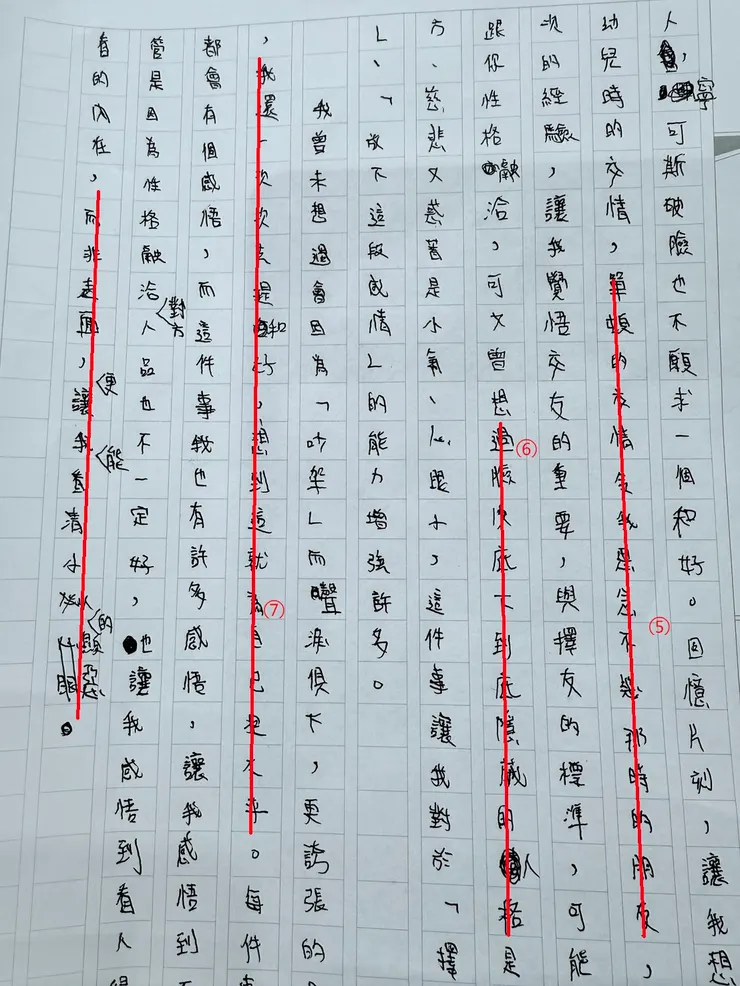 人,寧可斯破臉也不願求一個和好。回憶片刻,讓我想
幼兒時的交情,單頓的友情令我念不那時的朋友,
次的經驗,讓我覺悟交友的重要,與擇友的標準,可能
跟你性格融洽,可又曾想過臉皮底下到底隱藏的人格是
方、慈悲又慈善是小氣、心眼小,這件事讓我對於「擇
」、「放下這段感情」的能力增強許多。
我曾未想過會因為「吵架」而聲淚俱下,更誇張的
,我還一次次去提和好,想到這就為自己不。每件
都會有個感悟,而這件事我也有許多感悟,讓我感悟到
管是因為性格融洽對方人品也不一定好,也讓我感悟到看人得
看的內在,而非表面,便讓我能看清小人的眼。
⑤
⑥
⑦